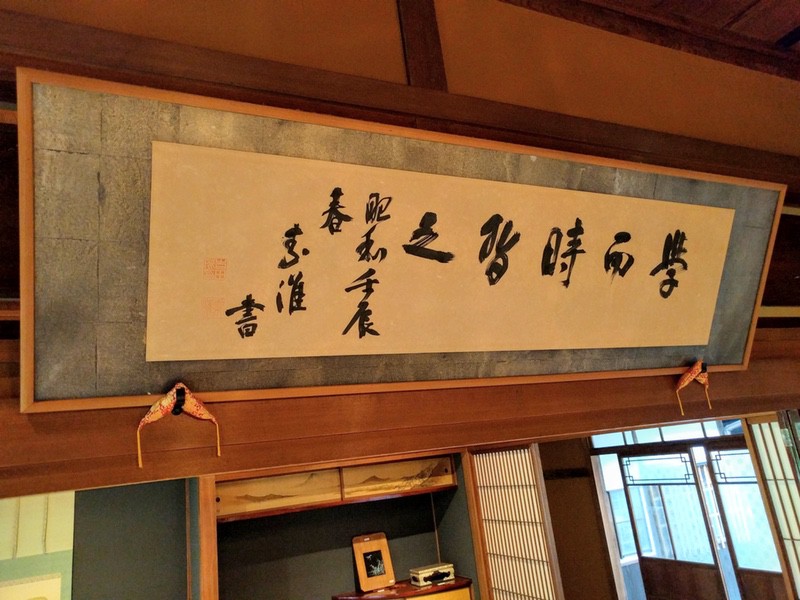 學而時習之
昭和壬辰
春
素淮
書